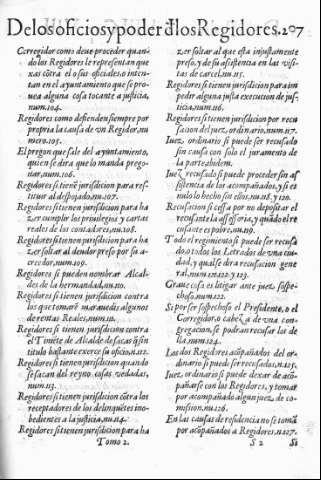 De los oficios y poder đ los Regidores. 207
Corregidor como deue proceder quan-
do los Regidores le representan que
xas cõtra el o sus oficiales, o inten-
tan en el ayuntamiento que se pro-
uea alguna cosa tocante a justicia,
num.104.
Regidores como defienden siempre por
propria la causa de vn Regidor, nu
mero.105.
El pregon que sale del ayuntamiento,
quien se dira que lo manda prego-
nar, num.106.
Regidores si tienẽ jurisdicion para res-
tituyr al despojado, num.107.
Regidores si tienen jurisdicion para ha
zer cumplir los priuilegios y cartas
reales de los contadores, nu.108.
Regidores si tienen jurisdicion para ha
zer soltar al deudor preso por su a-
creedor, num.109.
Regidores si pueden nombrar Alcal-
des de la hermandad, nu.110.
Regidores si tienen jurisdicion contra
los que tomarẽ mas medis, algunos
de rentas Reales, num.111.
Regidores si tienen jurisdicion contra
el Tiniẽte de Alcalde de sacas, q̃ sin
titulo bastante exerce su oficio, n.112.
Regidores si tienen jurisdicion quando
se sacan del reyno cosas vedadas,
num.113.
Regidores si tienen jurisdicion cõtra los
receptadores de los delinquẽtes ino-
bedientes a la justicia, nu.114.
Regidores si tienen jurisdicion para ha
Tomo 2.
zer soltar al que esta injustamente
preso, y de su assistencia en las visi-
tas de carcel, nu.115.
Regidores si tienen jurisdicion para im-
pedir alguna justa execucion de jus-
ticia, num.116.
Regidores si tienen jurisdicion por recu
sacion del juez, ordinario, num.117.
Iuez, ordinario si puede ser recusado
sin causa con solo el juramento de
la parte, ibidem.
Iuez recusado si puede proceder sin as
sistencia de los acompañados, y si es
nulo lo hecho sin ellos, nu.118. y 120.
Recusacion si cessa por no depositar el
recusante la assessoria, y quãdo el re
cusante es pobre, nu.119.
Todo el regimiento si puede ser recusa
do, o todos los Letrados de vna ciu-
dad, y qual se dira recusacion gene
ral, num.121.122. y 123.
Graue cosa es litigar ante juez sospe-
choso, num.122.
Si por ser sospechoso el Presidente, o el
Corregidor, o cabeça de vna con-
gregacion, se podran recusar los de
lla, num.124.
Los dos Regidores acõpañados del or-
dinario si pueden ser recusados, n.125.
Iuez, ordinario si puede dexar de acõ-
pañarse con los Regidores, y tomar
por acompañado algun juez de co-
mission, nu.126.
En las causas de residencia no se tomã
por acõpañados a Regidores, n.127.
S 2 Si